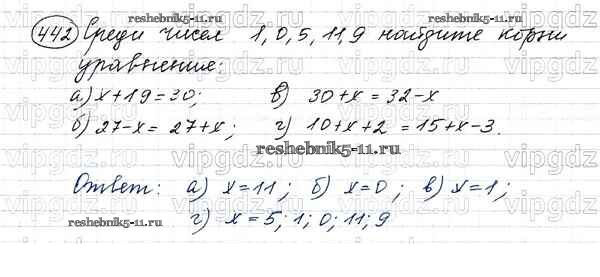 reshebnik5-11.ru
442 Среди чисел 1, 0, 5, 11, 9 найдите корни
уравнения:
а) x+19=30; в) 30+x=32-x
б) 27-x=27+x; г) 10+x+2=15+x-3.
reshebnik5-11.ru
Ответ: а) x=11; б) x=0; в) x=1;
reshebnik5-11.ru
г) x=5; 1; 0; 11; 9
vipgdz vipgdz vipgdz vipgdz